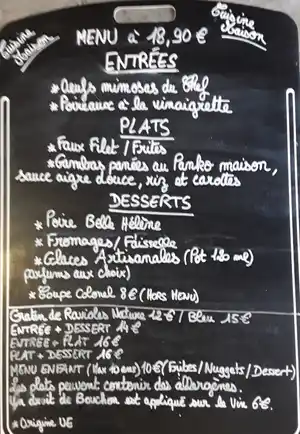 Cuisine Maison
Cuisine Maison
MENU à 18,90 €
ENTRÉES
* Oeufs mimosas du Chef
* Poireaux à la vinaigrette
PLATS
* Faux Filet / Frites
* Gambas panées au Panko maison,
sauce aigre douce, riz et carottes
DESSERTS
* Poire Belle Hélène
* Fromages / Faisselle
* Glaces Artisanales (Pot 120 ml)
parfums aux choix)
* Coupe Colonel 8€ (HORS MENU)
Gratin de Ravioles Nature 12€ / Bleu 15€
ENTRÉE + DESSERT 14€
ENTRÉE + PLAT 16€
PLAT + DESSERT 16€
MENU ENFANT (Max 10 ans) 10€ (Frites / Nuggets / Dessert)
Les plats peuvent contenir des allergènes.
Un droit de Bouchon est appliqué sur le Vin 6€.
* Origine UE